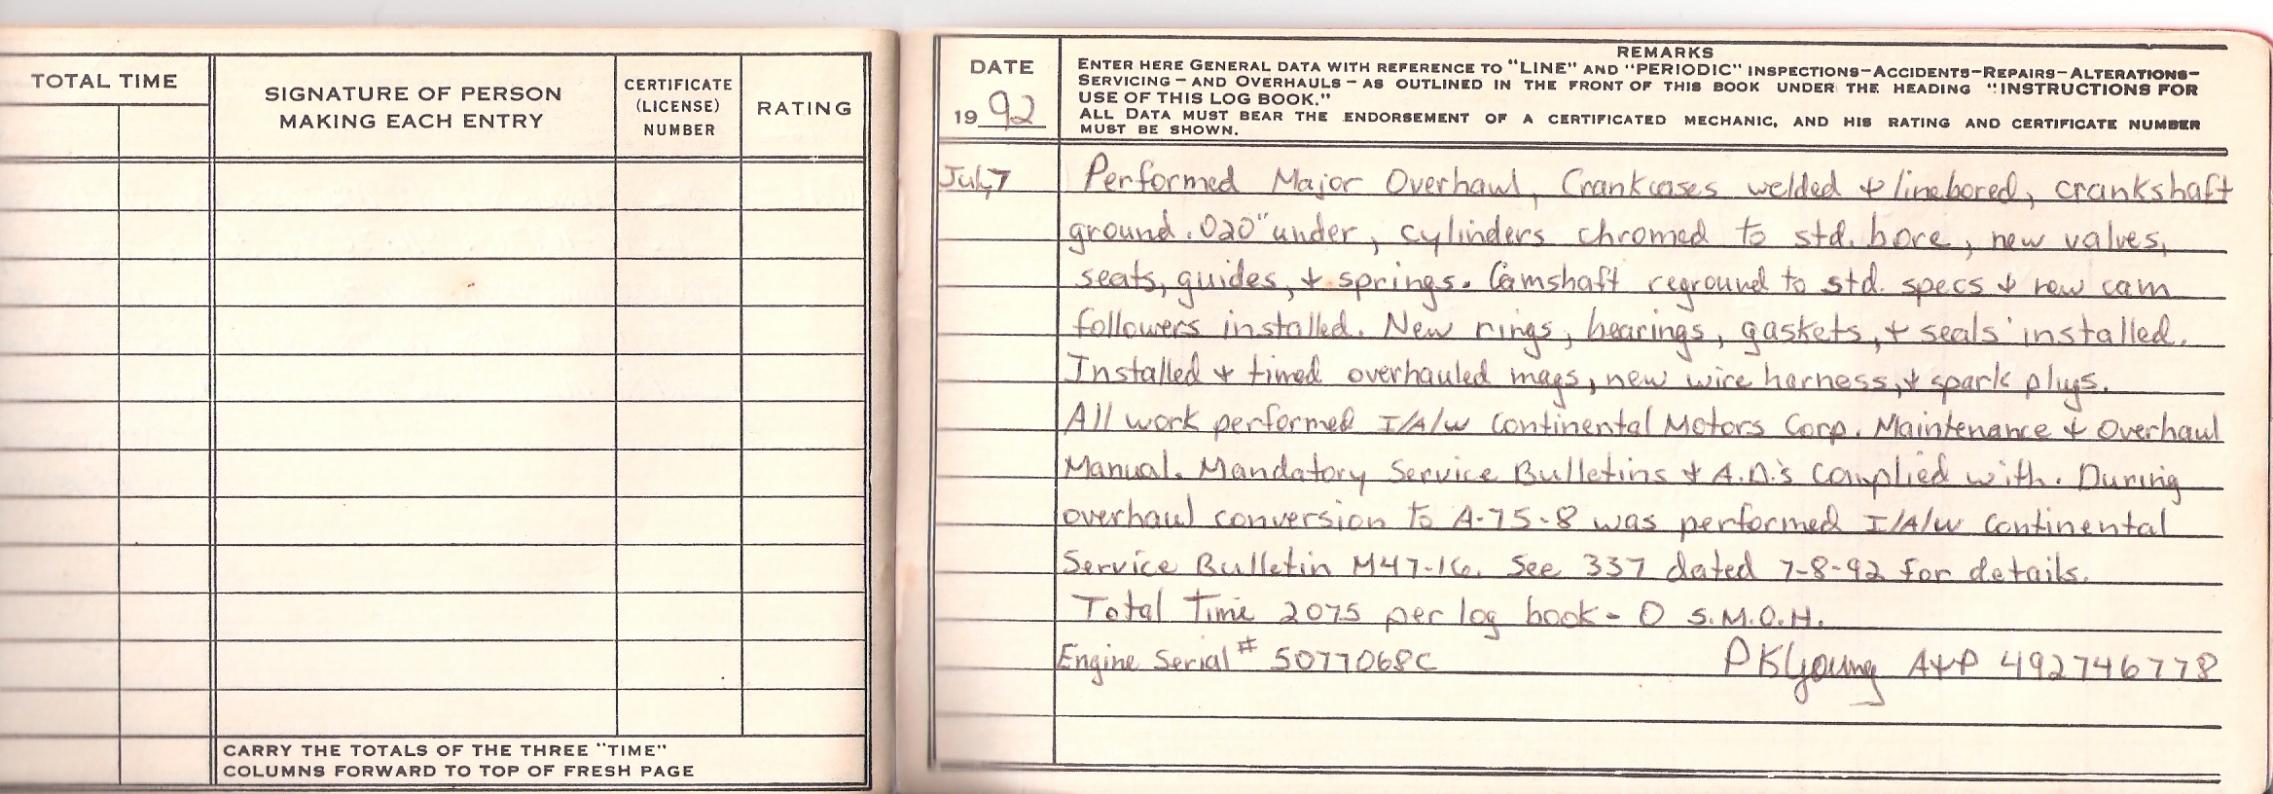 TOTAL TIME
SIGNATURE OF PERSON
MAKING EACH ENTRY
CERTIFICATE
(LICENSE)
NUMBER
RATING
CARRY THE TOTALS OF THE THREE "TIME"
COLUMNS FORWARD TO TOP OF FRESH PAGE
DATE
19 92
REMARKS
ENTER HERE GENERAL DATA WITH REFERENCE TO "LINE" AND "PERIODIC" INSPECTIONS-ACCIDENTS-REPAIRS-ALTERATIONS-
SERVICING - AND OVERHAULS - AS OUTLINED IN THE FRONT OF THIS BOOK UNDER THE HEADING "INSTRUCTIONS FOR
USE OF THIS LOG BOOK."
ALL DATA MUST BEAR THE ENDORSEMENT OF A CERTIFICATED MECHANIC, AND HIS RATING AND CERTIFICATE NUMBER
MUST BE SHOWN.
Jul,7 Performed Major Overhaul, Crankcases welded & linebored, crankshaft
ground .020" under, cylinders chromed to std. bore, new valves,
seats, guides, & springs. Camshaft reground to std. specs & new cam
followers installed. New rings, bearings, gaskets, & seals installed.
Installed & timed overhauled mags, new wire harness, & spark plugs.
All work performed I/A/W Continental Motors Corp. Maintenance & Overhaul
Manual. Mandatory Service Bulletins & A.D.'s complied with. During
overhaul conversion to A-75-8 was performed I/A/W Continental
Service Bulletin M47-16. See 337 dated 7-8-92 for details.
Total Time 2075 per log book - 0 S.M.O.H.
Engine Serial # 5077068C PKYoung A&P 492746778